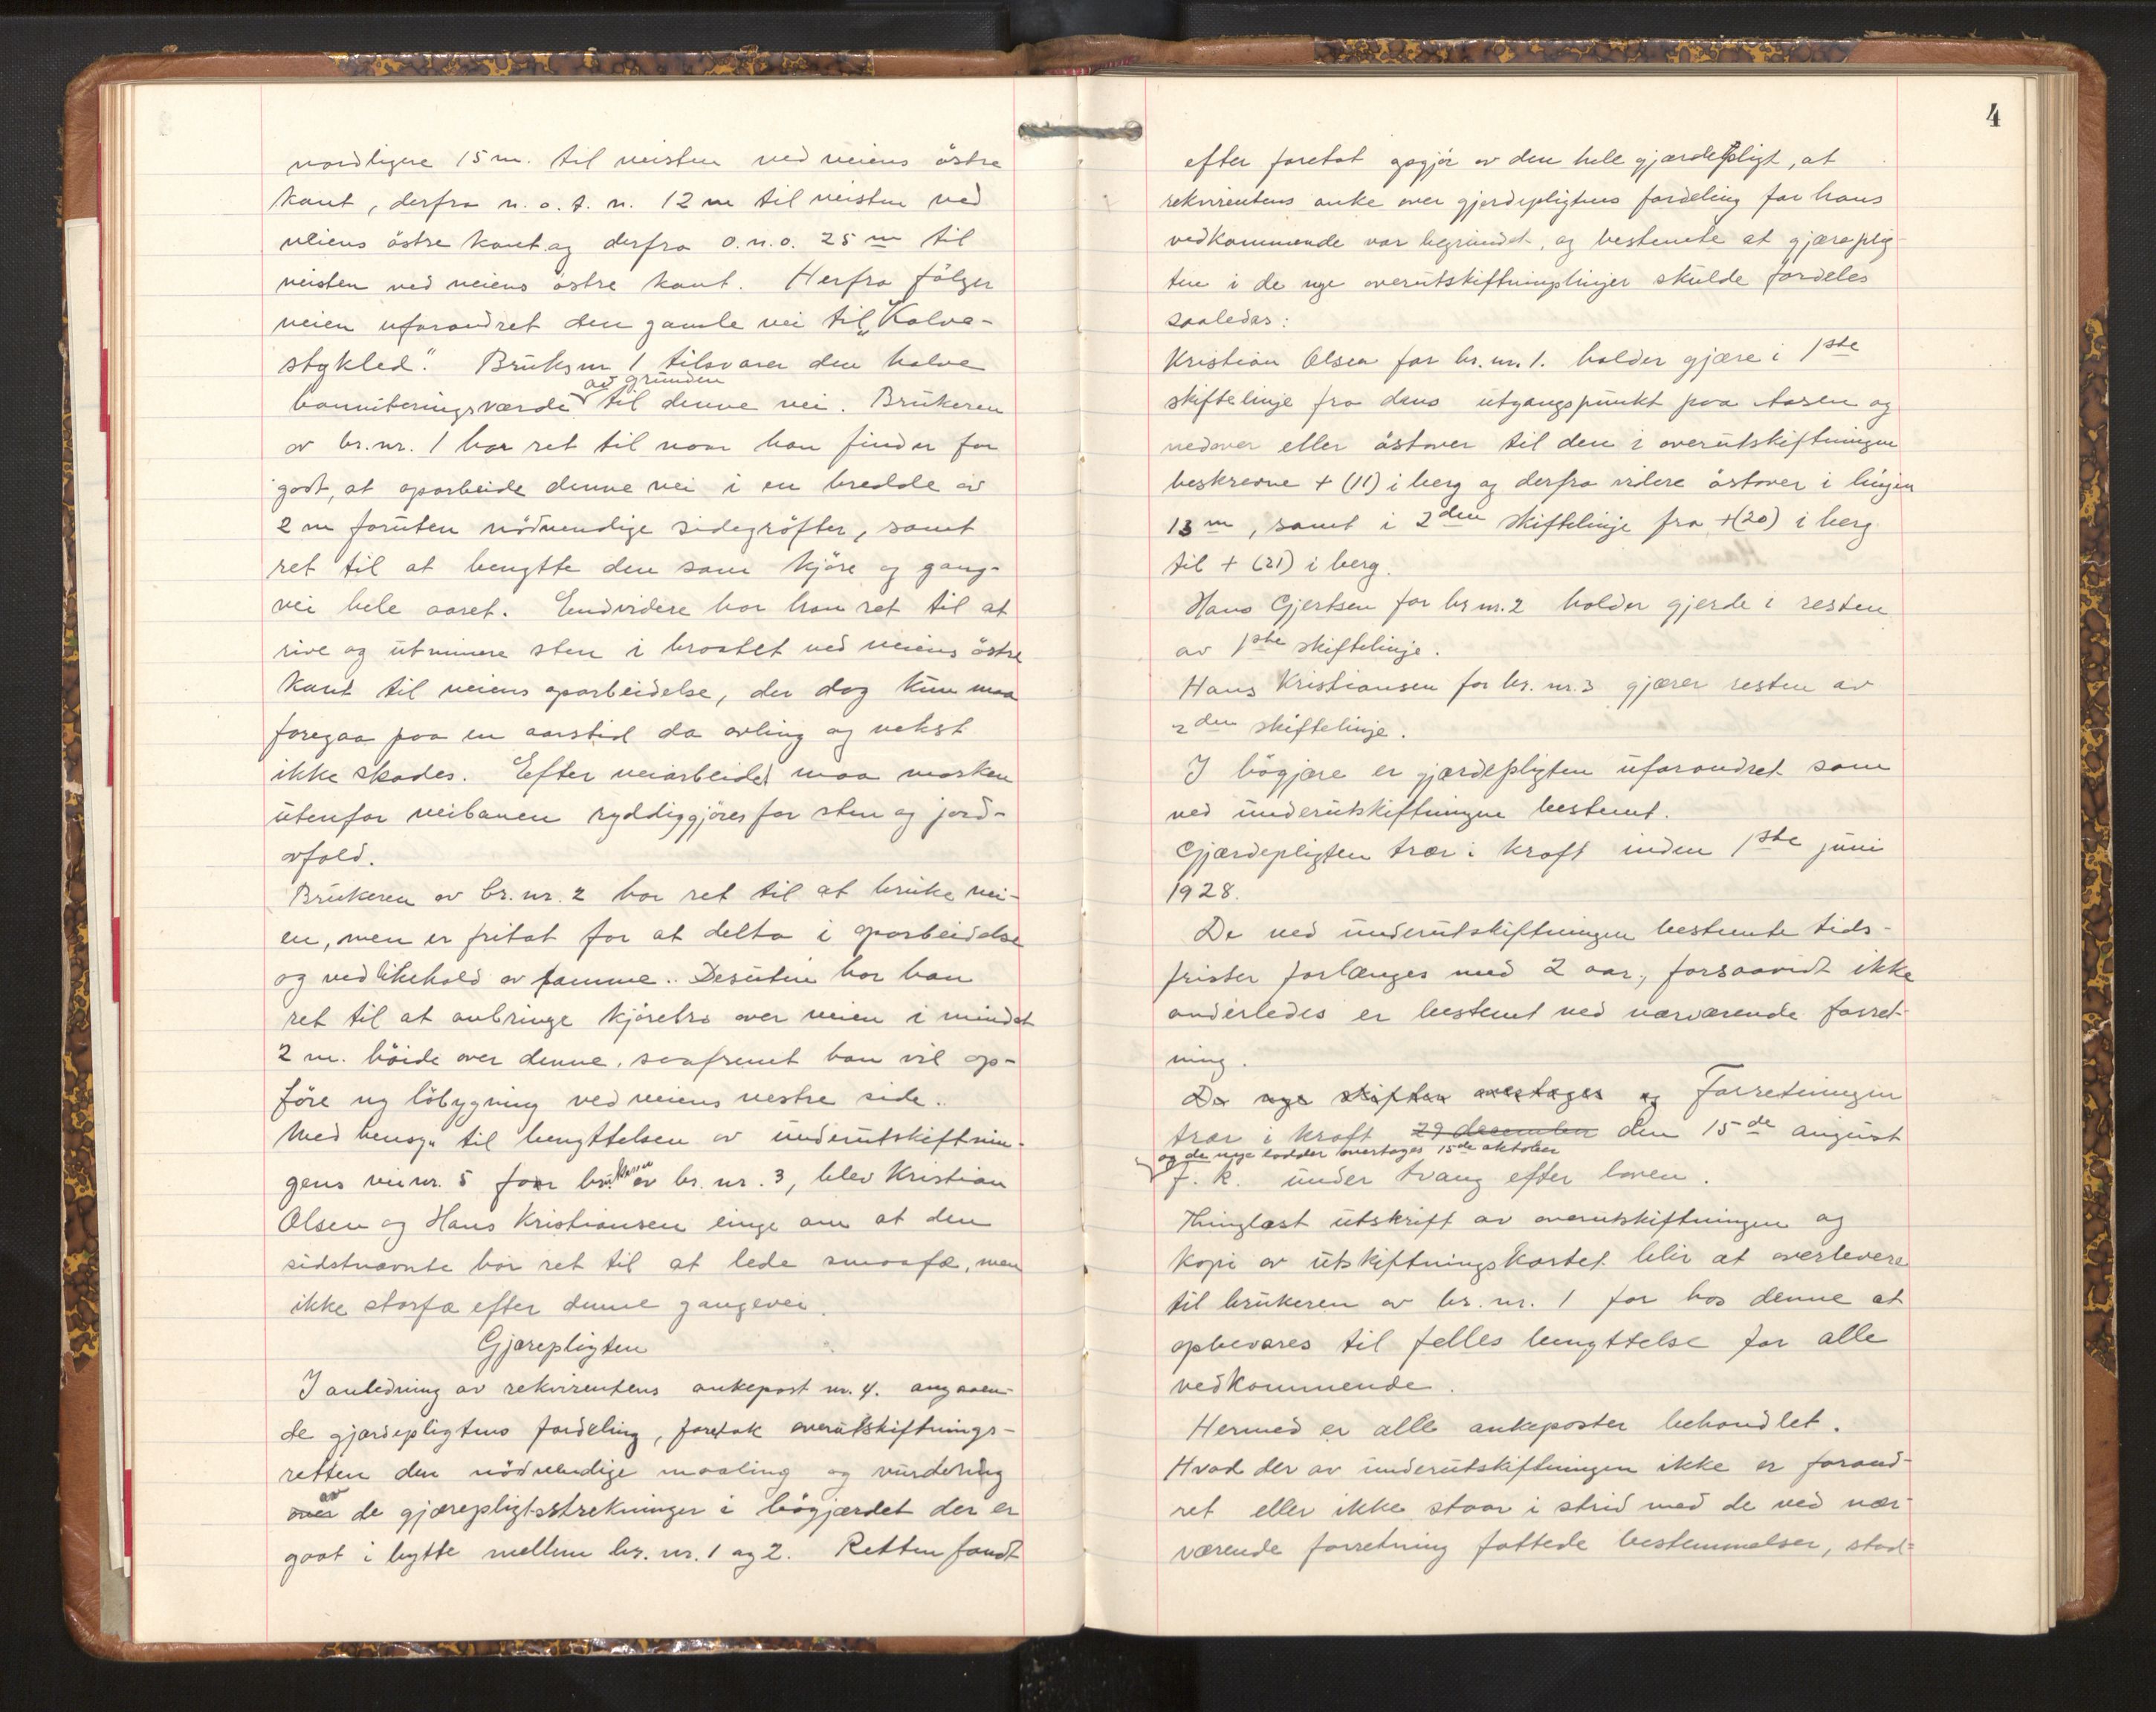 nordligere 15 m. til veisten ved veiens östre
kant, derfra n. o. t. n. 12 m til veisten ved
veiens östre kant og derfra o. n. o. 25 m til
veisten ved veiens östre kant. Herfra fölger
veien uforandret den gamle vei til „Kalve-
stykled". Bruksnr 1 tilsvarer den halve
bonniteringsværdi av grunden til denne vei. Brukeren
av br. nr. 1 har ret til naar han finder for
godt, at oparbeide denne vei i en bredde av
2 m foruten nödvendige sidegröfter, samt
ret til at benytte den som kjöre og gang-
vei hele aaret. Endvidere har han ret til at
rive og utminere sten i brattet ved veiens östre
kant til veiens oparbeidelse, der dog kun maa
foregaa paa en aarstid da avling og vekst
ikke skades. Efter veiarbeidet maa marken
utenfor veibanen ryddiggjöres for sten og jord-
avfald.
Brukeren av br. nr. 2 har ret til at bruke vei-
en, men er fritat for at delta i oparbeidelse
og vedlikehold av samme. Desuten har han
ret til at anbringe kjörebro over veien i mindst
2 m. höide over denne, saafremt han vil op-
före ny löbygning ved veiens vestre side.
Med hensyn til benyttelsen av underutskiftnin-
gens vei nr. 5 for brukeren av br. nr. 3, blev Kristian
Olsen og Hans Kristiansen enige om at den
sidstnævnte har ret til at lede smaafæ, men
ikke storfæ efter denne gangevei.
Gjærepligten
I anledning av rekvirentens ankepost nr. 4. angaaen-
de gjærdepligtens fordeling, foretok overutskiftnings-
retten den nödvendige maaling og vurdering
over av de gjærepligtsstrekninger i bögjærdet der er
gaat i bytte mellem br. nr. 1 og 2. Retten fandt
4
efter foretat opgjör av den hele gjærdepligt, at
rekvirentens anke over gjerdepligtens fordeling for hans
vedkommende var begrundet, og bestemte at gjærepilg-
ten i de nye overutskiftningslinjer skulde fordeles
saaledes:
Kristian Olsen for br. nr. 1. holder gjære i 1ste
skiftelinje fra dens utgangspunkt paa Aasen og
nedover eller östover til den i overutskiftningen
beskrevne + (11) i berg og derfra videre östover i linjen
13 m, samt i 2den skiftelinje fra + (20) i berg
til + (21) i berg.
Hans Gjertsen for br nr. 2 holder gjerde i resten
av 1ste skiftelinje.
Hans Kristiansen for br. nr. 3 gjærer resten av
2den skiftelinje.
I bögjære er gjærdepligten uforandret som
ved underutskiftningen bestemt.
Gjærdepligten trær i kraft inden 1ste juni
1928.
De ved underutskiftningen bestemte tids-
frister forlænges med 2 aar, forsaavidt ikke
anderledes er bestemt ved nærværende forret-
ning.
De nye skifter overtages og Forretningen
trær i kraft 29 desember den 15de august
og de nye lodder overtages 15de oktober
f. k. under tvang efter loven.
Thinglæst utskrift av overutskiftningen og
kopi av utskiftningskartet blir at overlevere
til brukeren av br. nr. 1 for hos denne at
opbevares til felles benyttelse for alle
vedkommende.
Hermed er alle ankeposter behandlet.
Hvad der av underutskiftningen ikke er forand-
ret eller ikke staar i strid med de ved nær-
værende forretning fattede bestemmelser, stad-